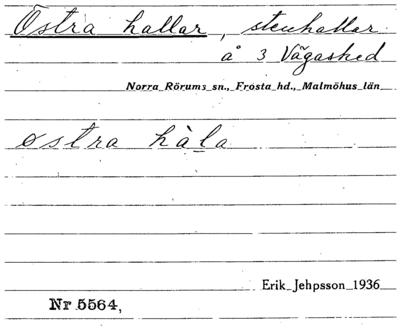 Östra hallar, stenhallar
å 3 Vägasked
Norra Rörums sn., Frosta hd., Malmöhus län
østra hàla
Erik Jehpsson 1936
Nr 5564,